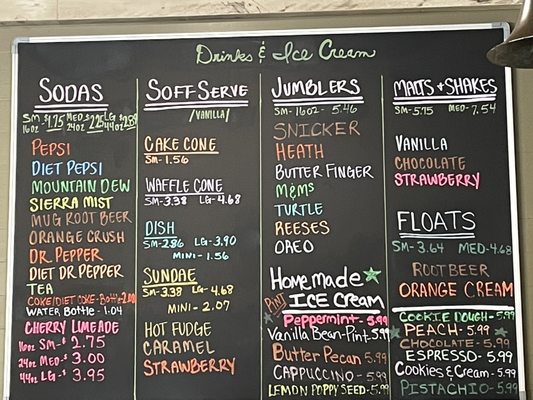 Drinks & Ice Cream
SODAS
SM - $1.75 MED - $2.25 LG - $2.89
16oz 24oz 44oz
PEPSI
DIET PEPSI
MOUNTAIN DEW
SIERRA MIST
MUG ROOT BEER
ORANGE CRUSH
DR. PEPPER
DIET DR PEPPER
TEA
COKE/DIET COKE-BOTTLE-2.00
WATER BOTTLE - 1.04
CHERRY LIMEADE
16oz SM - $ 2.75
24oz MED - $ 3.00
44oz LG - $ 3.95
SOFF SERVE
/VANILLA/
CAKE CONE
SM - 1.56
WAFFLE CONE
SM - 3.38 LG - 4.68
DISH
SM - 2.86 LG - 3.90
MINI - 1.56
SUNDAE
SM - 3.38 LG - 4.68
MINI - 2.07
HOT FUDGE
CARAMEL
STRAWBERRY
JUMBLERS
SM - 16oz - 5.46
SNICKER
HEATH
BUTTER FINGER
M&MS
TURTLE
REESES
OREO
Homemade
PINT ICE CREAM
Peppermint - 5.99
Vanilla Bean-Pint 5.99
Butter Pecan 5.99
CAPPUCCINO - 5.99
LEMON POPPY SEED - 5.99
MALTS & SHAKES
SM - 5.75 MED - 7.54
VANILLA
CHOCOLATE
STRAWBERRY
FLOATS
SM - 3.64 MED - 4.68
ROOT BEER
ORANGE CREAM
COOKIE DOUGH - 5.99
PEACH - 5.99
CHOCOLATE - 5.99
ESPRESSO - 5.99
Cookies & Cream - 5.99
PISTACHIO - 5.99